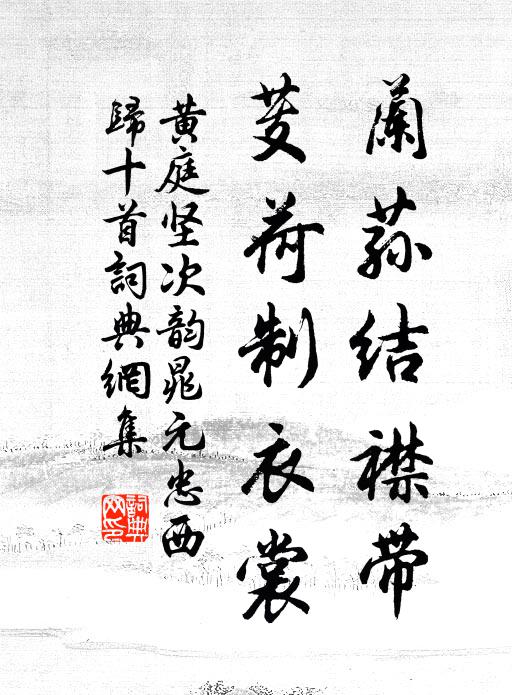 蘭蓀結襟帶
芰荷制衣裳
黄庭坚次韵晁元忠西
歸十首詞典網集
詞典
网印